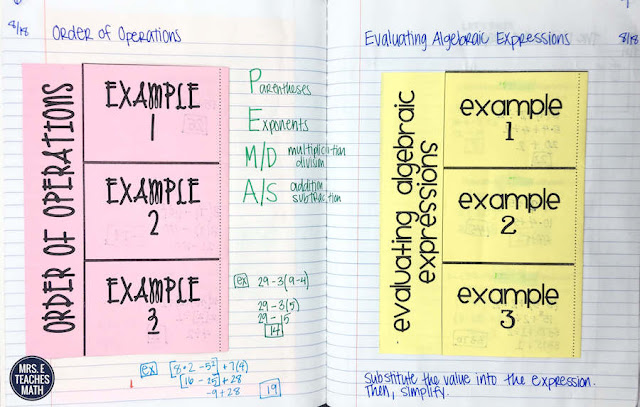 8/18
Order of Operations
ORDER OF OPERATIONS
EXAMPLE
1
EXAMPLE
2
EXAMPLE
3
Parentheses
Exponents
M/D multiplication
division
A/S addition
subtraction
ex 29 - 3(9-4)
29 - 3(5)
29 - 15
14
ex [8•2 - 5²] + 7(4)
[16 - 25] + 28
-9 + 28
19
MRS. E
TEACHES
MATH
Evaluating Algebraic Expressions
8/18
evaluating algebraic
expressions
example
1
example
2
example
3
Substitute the value into the expression.
Then, simplify.